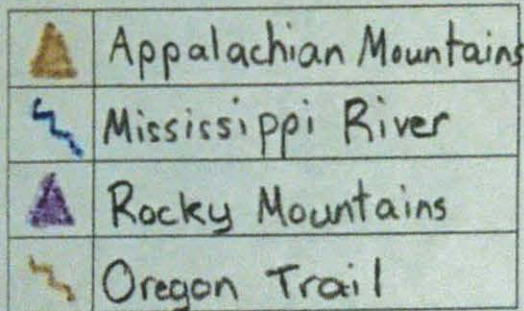 Appalachian Mountains
Mississippi River
Rocky Mountains
Oregon Trail